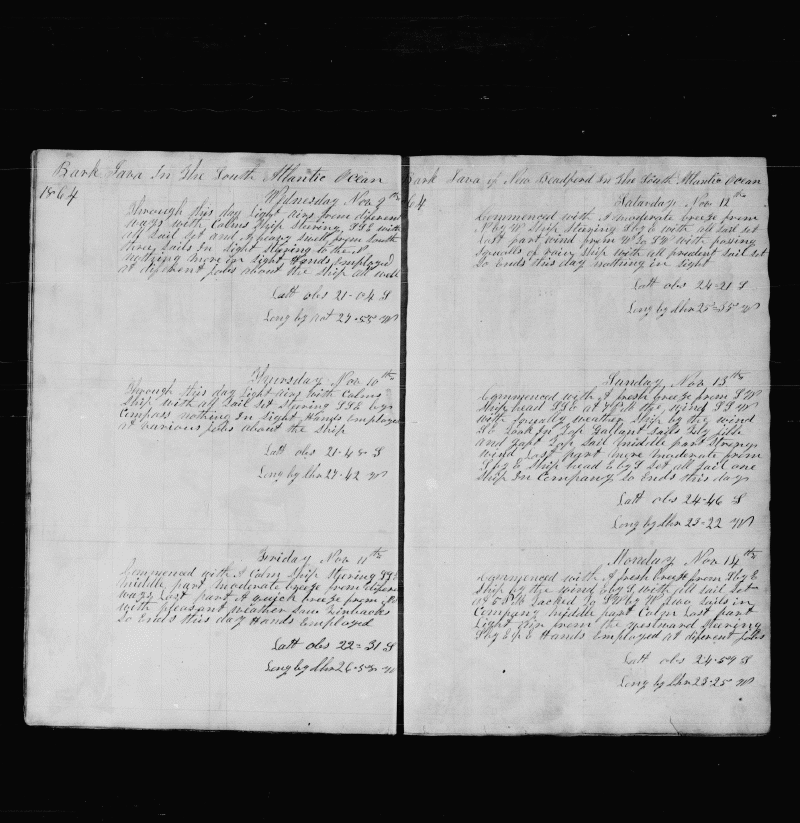 Bark Java In The South Atlantic Ocean
1864
Wednesday Nov 9th
Through this day Light airs from diferent
ways with Calms Ship steering SSE with
all Sail Set and A heavy swell from South
three Sails In Sight steering to the
nothing more in Sight Hands Employed
at diferent Jobs about the Ship all well
Latt obs 21-04 S
Long by 27-55 W
Thursday Nov 10th
Through this day Light airs with Calms
Ship with all Sail Set steering SSE by
Compass nothing In Sight Hands Employed
at various Jobs about the Ship
Latt obs 21-48 S
Long by Chr 27-42 W
Friday Nov 11th
Commenced with A Calm Ship Steering SSE
middle part moderate breeze from diferent
ways Last part A quick breeze from
with pleasant weather Saw Finbacks
So Ends this day Hands Employed
Latt obs 22=31 S
Long by Chr 26-53 W
Bark Java of New Beadford In The South Atlantic Ocean
64
Saturday Nov 12th
Commenced with A moderate breeze from
N by W Ship Steering S by E with all Sail set
Last part wind from W to SW with passing
Squalls of rain Ship with all prudent Sail set
So Ends this day nothing in Sight
Latt obs 24-21 S
Long by Chr 25=35 W
Sunday Nov 13th
Commenced with A fresh breeze from SW
Ship head SSE at the wind SSW
with Squally weather Ship by the wind
Took In Top Gallant Sails Fly jibb
and Gaft Top Sail middle part Strong
wind Last part more moderate from
S by E Ship head E by S Set all Sail one
Ship In Company So Ends this day
Latt obs 24-46 S
Long by Chr 23-22 W
Monday Nov 14th
Commenced with A fresh breeze from S by E
Ship by the wind E by S with all Sail set
at 5 P.M tacked to SW by W two Sails in
Company middle part Calm Last part
Light air from the westward Steering
S by E & E Hands Employed at diferent Jobs
Latt obs 24-59 S
Long by Chr 23-25 W